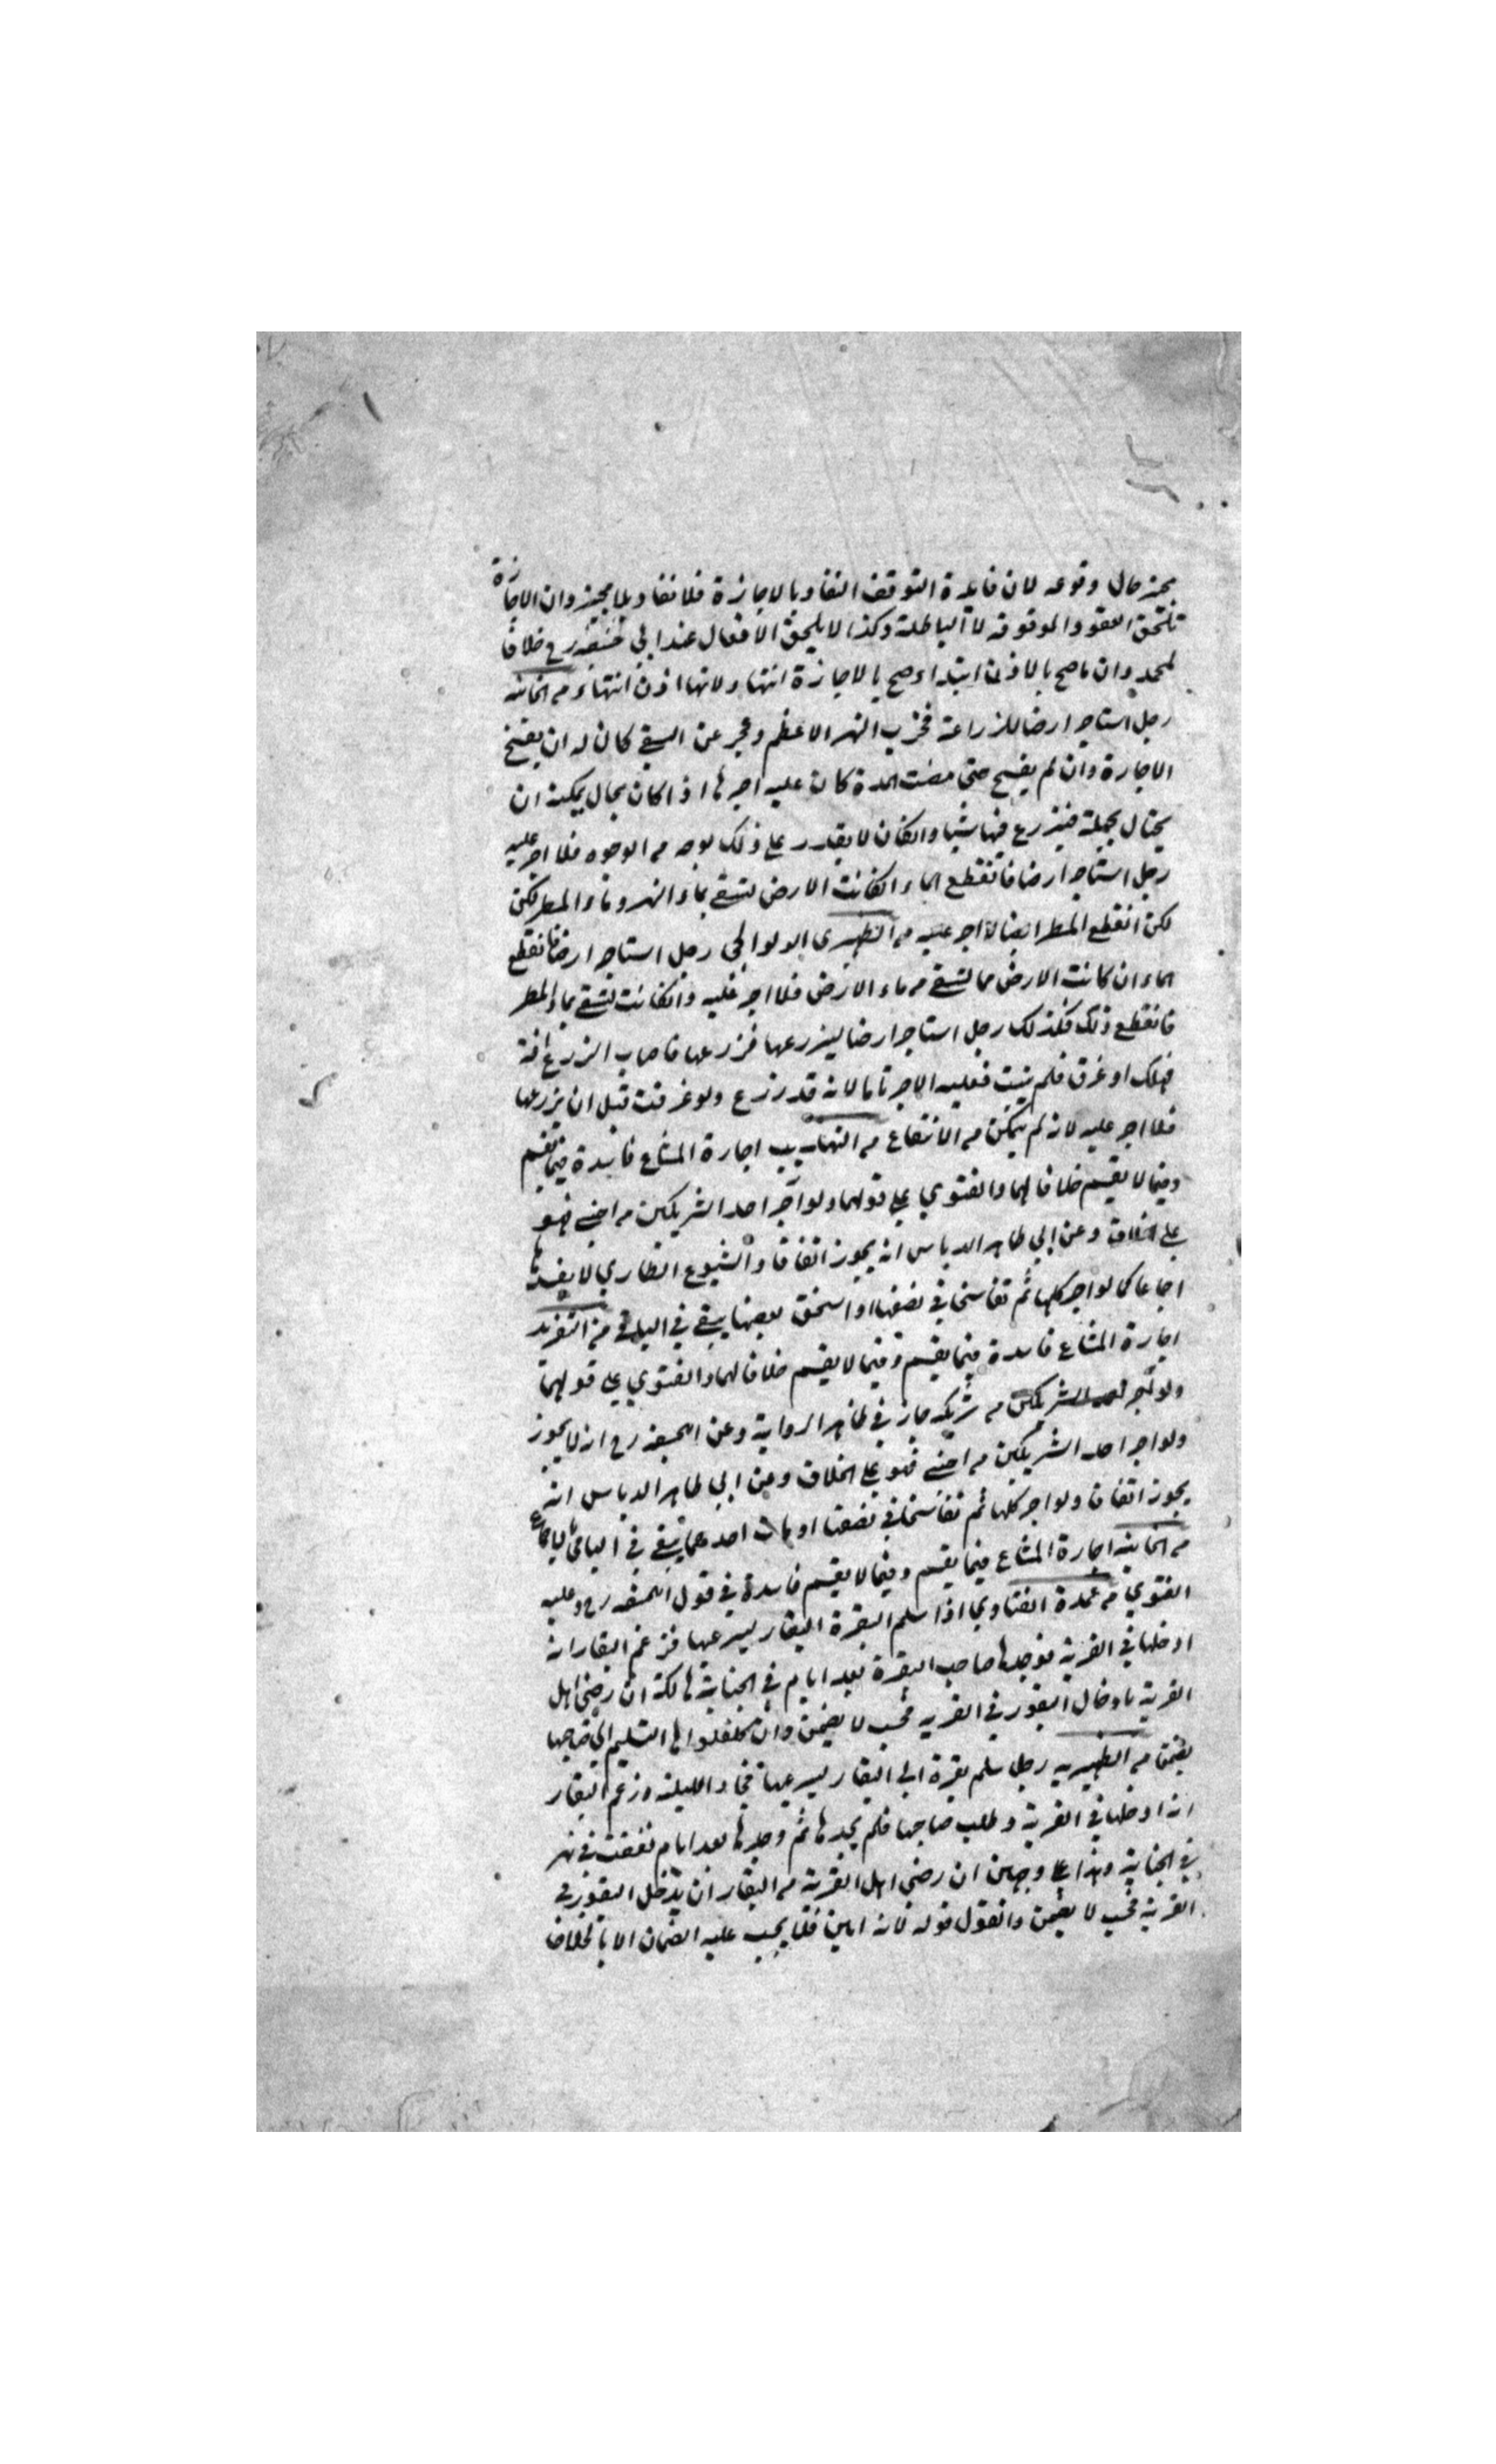 مجيز حال وقوعه لان فايدة التوقف النفاذ بالاجازة فلا نفاذ بلا مجيز وان الاجازة
تلحق العقود الموقوفه لا الباطلة وكذا لا يلحق الافعال عند ابي حنيفه رح خلافا
لمحمد وان ما صح بالاذن ابتداء صح بالاجازة انتهاء ولانها اذن انتهاء من الخانيه
رجل استاجر ارضا للزراعة فخرب النهر الاعظم وعجز عن السقي كان له ان يفسخ
الاجارة وان لم يفسخ حتى مضت المدة كان عليه اجرها اذا كان بحال يمكنه ان
يحتال بحيلة فيزرع فيها شيا وانكان لا يقدر على ذلك بوجه من الوجوه فلا اجر عليه
رجل استاجر ارضا فانقطع الماء انكانت الارض تسقى بماء النهر وماء المطر لكن
لكن انقطع المطر ايضا لا اجر عليه من الظهيرى الولوالجى رجل استاجر ارضا فانقطع
الماء ان كانت الارض مما تسقى من ماء الارض فلا اجر عليه وانكانت تسقى بماء المطر
فانقطع ذلك فكذلك رجل استاجر ارضا ليزرعها فزرعها فاصاب الزرع افة
فهلك او غرق فلم ينبت فعليه الاجر تاما لانه قد زرع ولو غرقت قبل ان يزرعها
فلا اجر عليه لانه لم يتمكن من الانتفاع من التهذيب اجارة المشاع فاسدة فيما يقسم
وفيما لا يقسم خلافا لهما والفتوي على قولهما ولو آجر احد الشريكين من اجنبي فهو
على الخلاف وعن ابي طاهر الدباس انه يجوز اتفاقا والشيوع الطاري لا يفسدها
اجماعا كما لو اجر كلها ثم تفاسخا في نصفها او استحق بعضها يبقى في الباقي من التفريد
اجارة المشاع فاسدة فيما يقسم وفيما لا يقسم خلافا لهما والفتوي على قولهما
ولو آجر احد الشريكين من شريكه جاز في ظاهر الرواية وعن ابيحنيفه رح انه لا يجوز
ولو اجر احد الشريكين من اجنبي فهو على الخلاف وعن ابي طاهر الدباس انه
يجوز اتفاقا ولو اجر كلها ثم تفاسخا في نصفها او مات احدهما يبقى في الباقي بالاجماع
من الخانيه اجارة المشاع فيما يقسم وفيما لا يقسم فاسدة في قول ابيحنيفه رح وعليه
الفتوي من عمدة الفتاوي اذا سلم البقرة البقار ليرعيها فزعم البقار انه
ادخلها في القرية فوجدها صاحب البقرة بعد ايام في الجبانة هالكة ان رضي اهل
القرية بادخال البقور في القريه فحسب لا يضمن وان كلفوا التسليم الى صاحبها
يضمن من الظهيريه رجل سلم بقرة الى البقار ليرعيها فجاء الليلة وزعم البقار
انه ادخلها في القرية وطلب صاحبها فلم يجدها ثم وجدها بعد ايام نفقت في نهر
في الجبانة وهذا على وجهين ان رضى اهل القرية من البقار ان يدخل البقور في
القرية فحسب لا يضمن والقول قوله لانه امين فلا يجب عليه الضمان الا بالخلاف